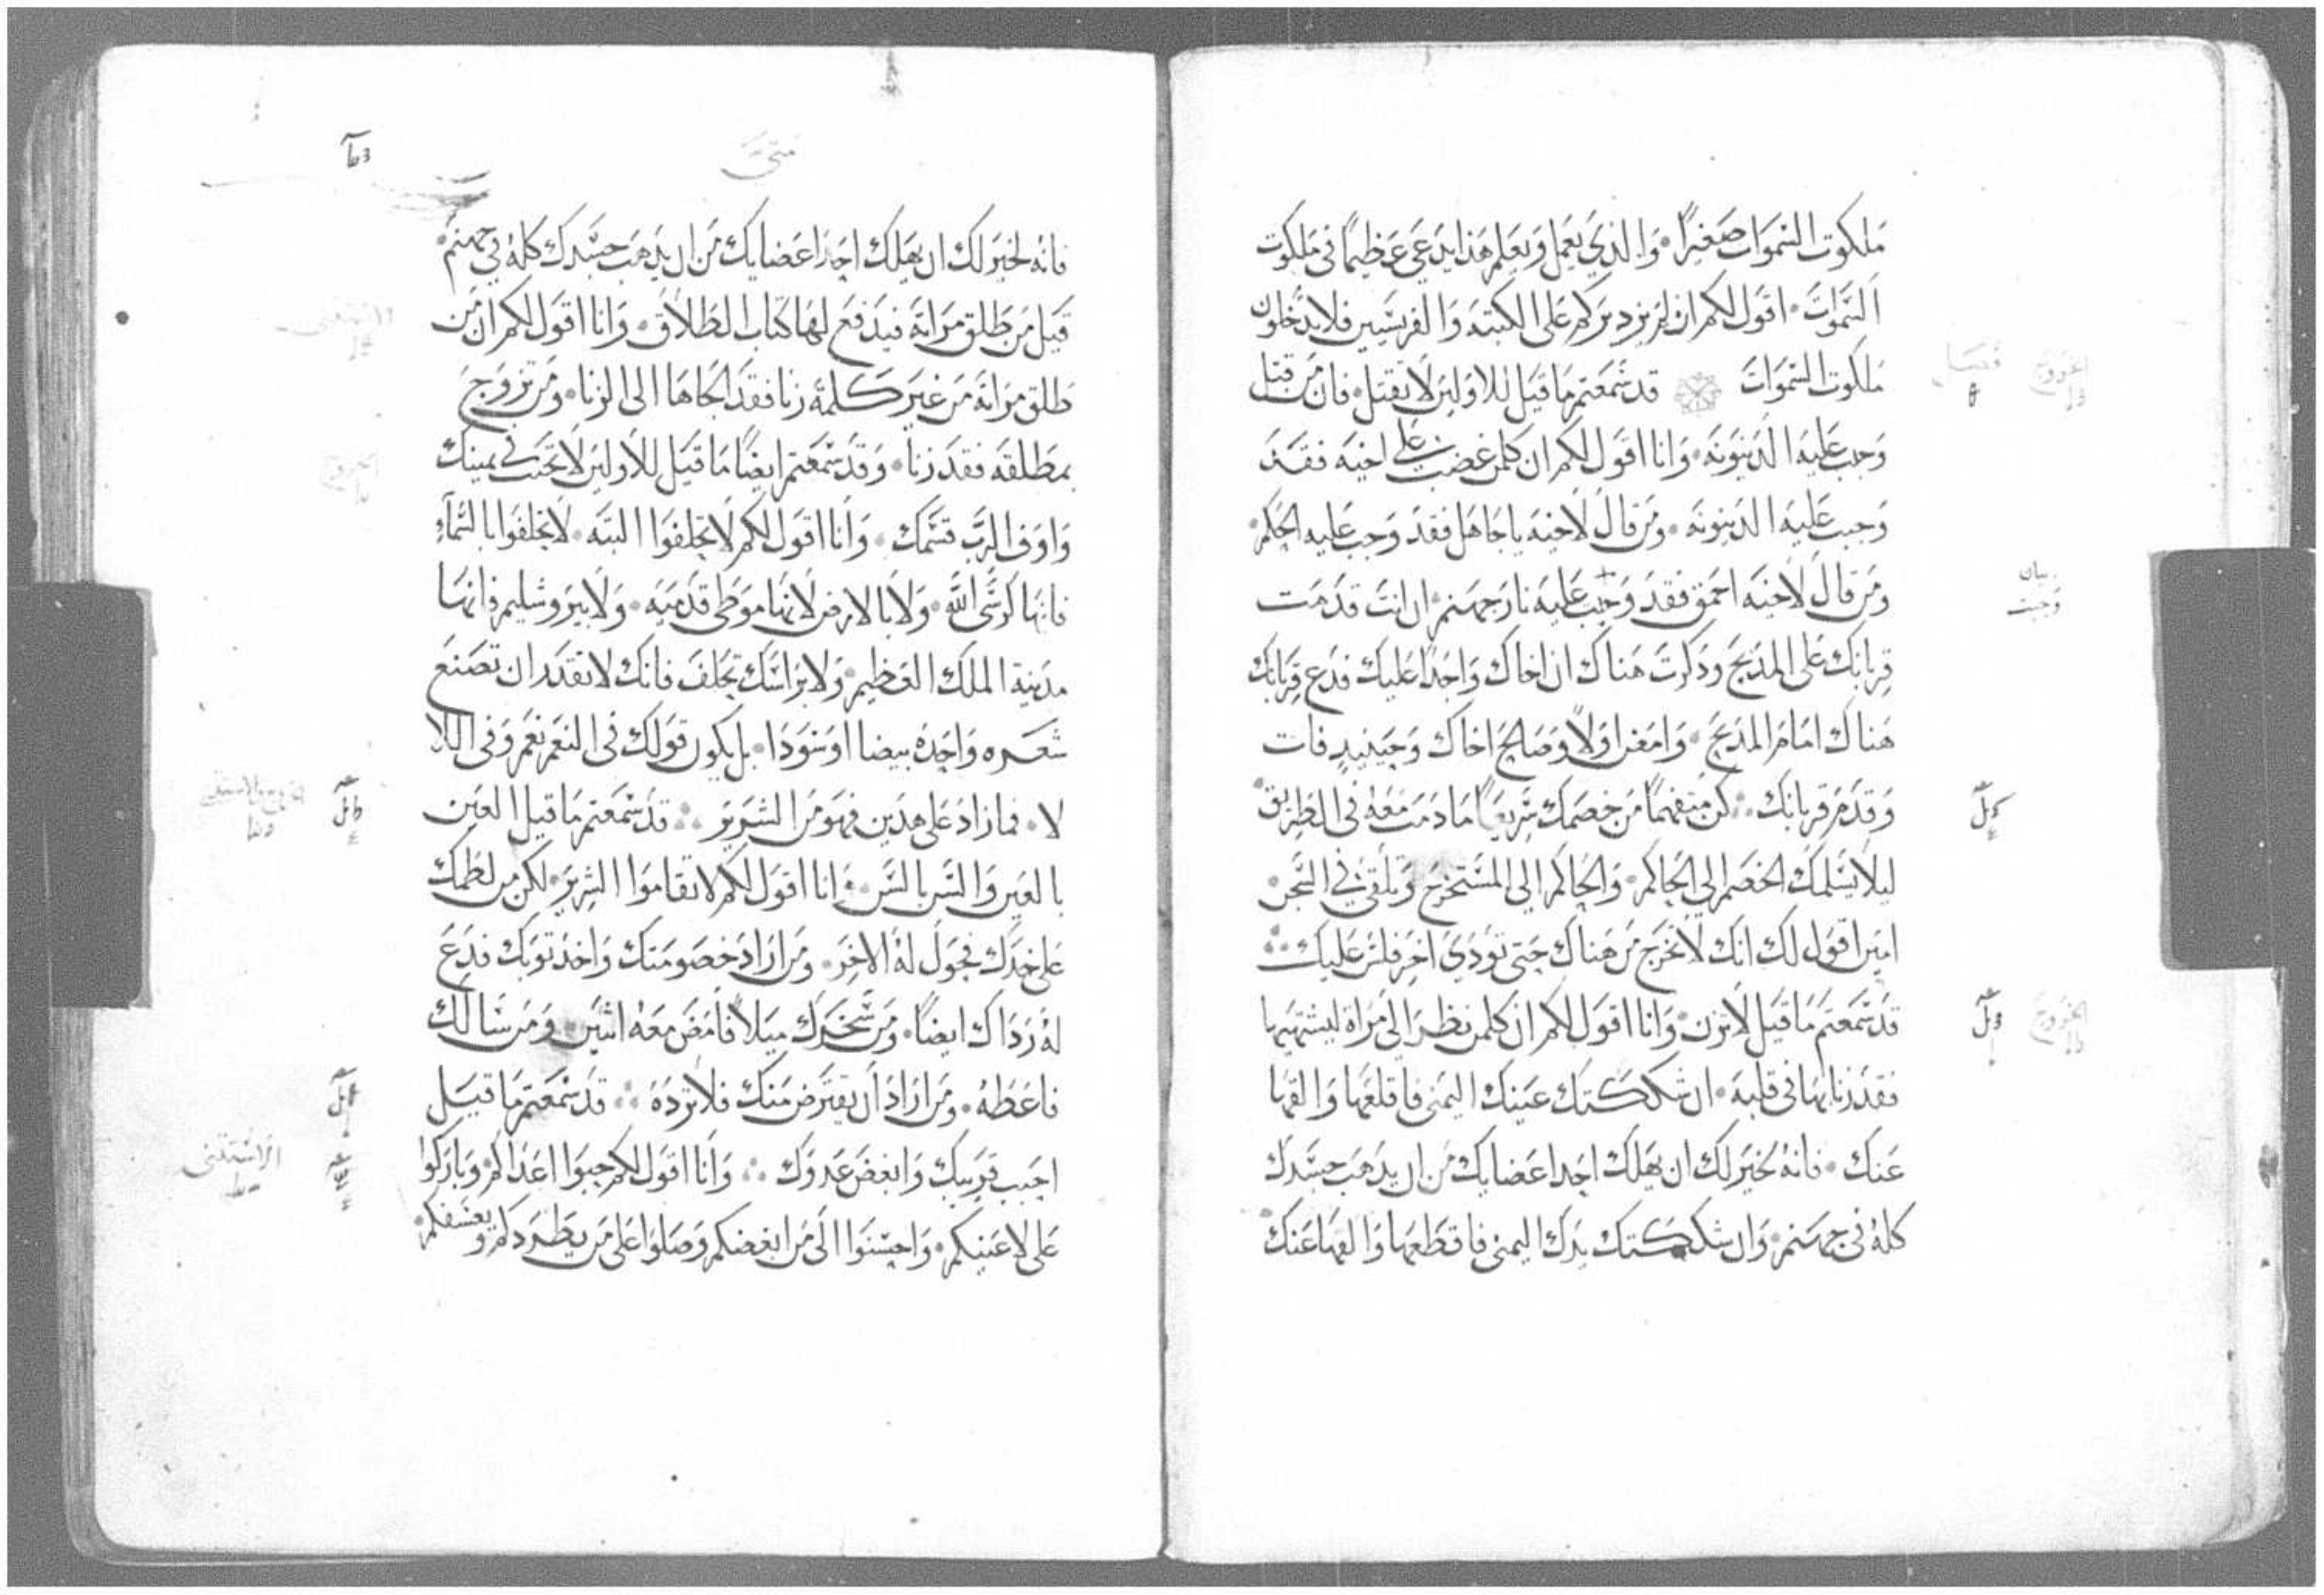 ملكوت السموات صغيرا. والذي يعمل ويعلم هذا يدعى عظيما في ملكوت
السموات. اقول لكم ان لم يزد بركم على الكتبه والفريسيين فلا تدخلون
ملكوت السموات قد سمعتم ما قيل للاولين لا تقتل. فان من قتل
وجب عليه الدينونه. وانا اقول لكم ان كلمن غضب على اخيه فقد
وجبت عليه الدينونه. ومن قال لاخيه يا جاهل فقد وجب عليه الحكم.
ومن قال لاخيه احمق فقد وجب عليه نار جهنم. ان انت قدمت
قربانك على المذبح وذكرت هناك ان اخاك واجدا عليك فدع قربانك
هناك امام المذبح. وامض اولا وصالح اخاك وحينيذ فات
وقدم قربانك. كن متفهما من خصمك سريعا ما دمت معه في الطريق.
ليلا يسلمك الخصم الى الحاكم. والحاكم الي المستخرج وتلقى في السجن.
امين اقول لك انك لا تخرج من هناك حتى تودي اخر فلس عليك
قد سمعتم ما قيل لا تزن. وانا اقول لكم ان كلمن نظر الى مراة ليشتهيها
فقد زنا بها في قلبه. ان شككتك عينك اليمنى فاقلعها والقها
عنك. فانه لخير لك ان يهلك احدا عضايك من ان يذهب جسدك
كله في جهنم. وان شككتك يدك اليمنى فاقطعها والقها عنك
فصل
الخروج
بيان
وجبت
الخروج
متى
فانه لخير لك ان يهلك احد اعضايك من ان يذهب جسدك كله في جهنم.
قيل من طلق مراته فيدفع لها كتاب الطلاق. وانا اقول لكم ان من
طلق مراته من غير كلمة زنا فقد الجاها الى الزنا. ومن تزوج
بمطلقه فقد زنا. وقد سمعتم ايضا ما قيل للاولين لا تحنث في يمينك
واوف الرب قسمك. وانا اقول لكم لا تحلفوا البته. لا تحلفوا بالسماء
فانها كرسي الله. ولا بالارض لانها موطى قدميه. ولا بيروشليم فانها
مدينة الملك العظيم. ولا براسك تحلف فانك لا تقدر ان تصنع
شعره واحده بيضا او سودا. بل يكون قولك في النعم نعم وفى اللا
لا. فما زاد على هدين فهو من الشرير قد سمعتم ما قيل العين
بالعين والسن بالسن. وانا اقول لكم لا تقاموا الشرير. لكن من لطمك
على خدك فحول له الاخر. ومن اراد خصومتك واخذ توبك فدع
له رداك ايضا. ومن سخرك ميلا فامض معه اثنين. ومن سالك
فاعطه. ومن اراد ان يقترض منك فلا ترده قد سمعتم ما قيل
احبب قريبك وابغض عدوك وانا اقول لكم حبوا اعداكم وباركوا
على لاعنيكم. واحسنوا الى من ابغضكم وصلوا على من يطردكم ويعسفكم.
الاستثنى
الخروج
الاستثنى